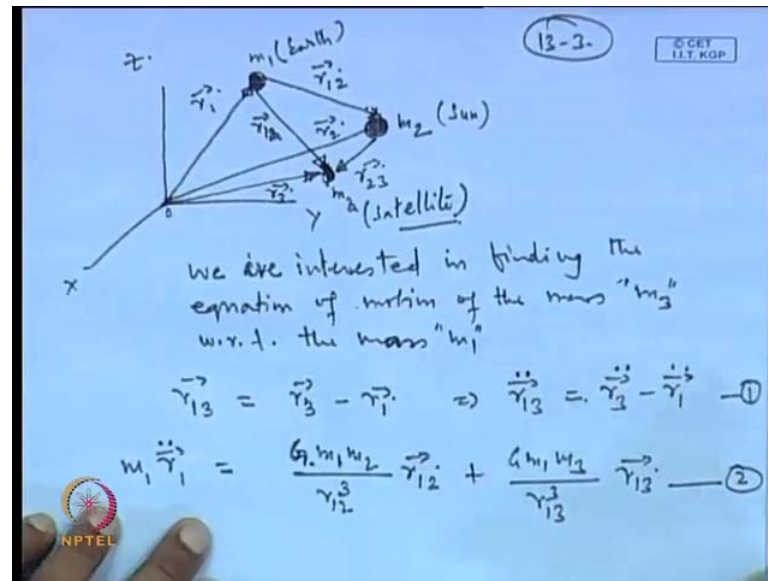 13-3.
© CET
I.I.T. KGP
Z.
m₁ (Earth)
r⃗₁₂
r⃗₁
r⃗₁₃
r⃗₂
m₂ (Sun)
r⃗₃
r⃗₂₃
0
m₃ (Satellite)
Y
X
we are interested in finding the
equation of motion of the mass "m₃"
w.r.t. the mass "m₁"
r⃗₁₃ = r⃗₃ - r⃗₁. => r̈⃗₁₃ = r̈⃗₃ - r̈⃗₁ —①
m₁ r̈⃗₁ = G.m₁m₂/r₁₂³ r⃗₁₂ + Gm₁m₃/r₁₃³ r⃗₁₃. —②
NPTEL